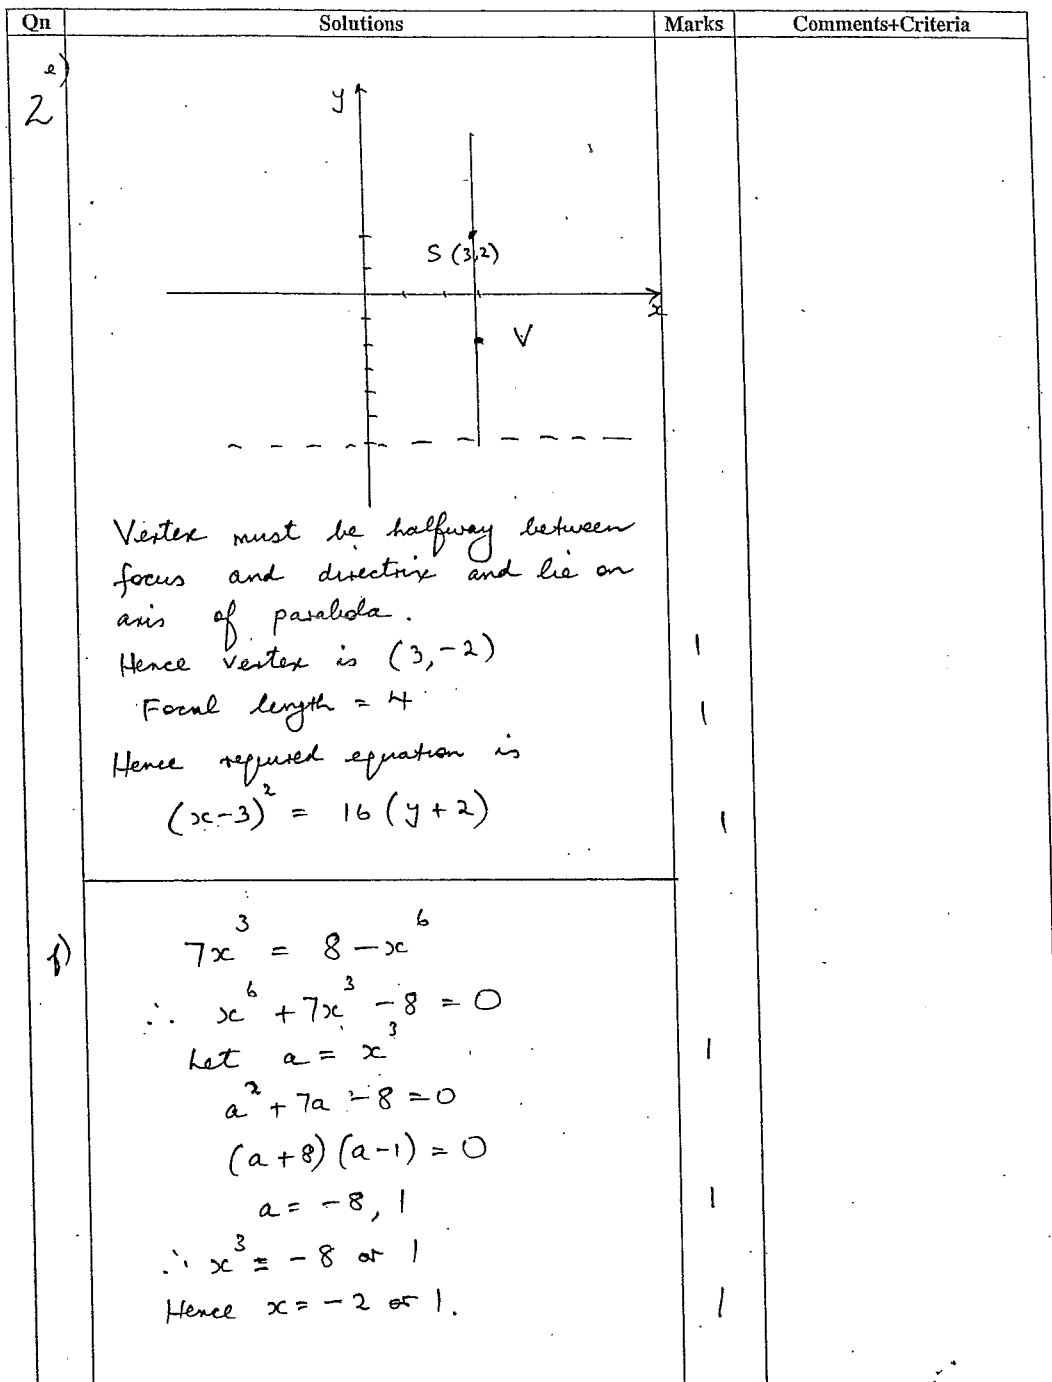 Qn Solutions Marks Comments+Criteria
2 e)
y
S (3,2)
x
V
Vertex must be halfway between
focus and directrix and lie on
axis of parabola.
Hence vertex is (3,-2) 1
Focal length = 4 1
Hence required equation is
(x-3)² = 16 (y + 2) 1
f) 7x³ = 8 - x⁶
∴ x⁶ + 7x³ - 8 = 0
Let a = x³ 1
a² + 7a - 8 = 0
(a+8)(a-1) = 0
a = -8, 1 1
∴ x³ = -8 or 1
Hence x = -2 or 1. 1